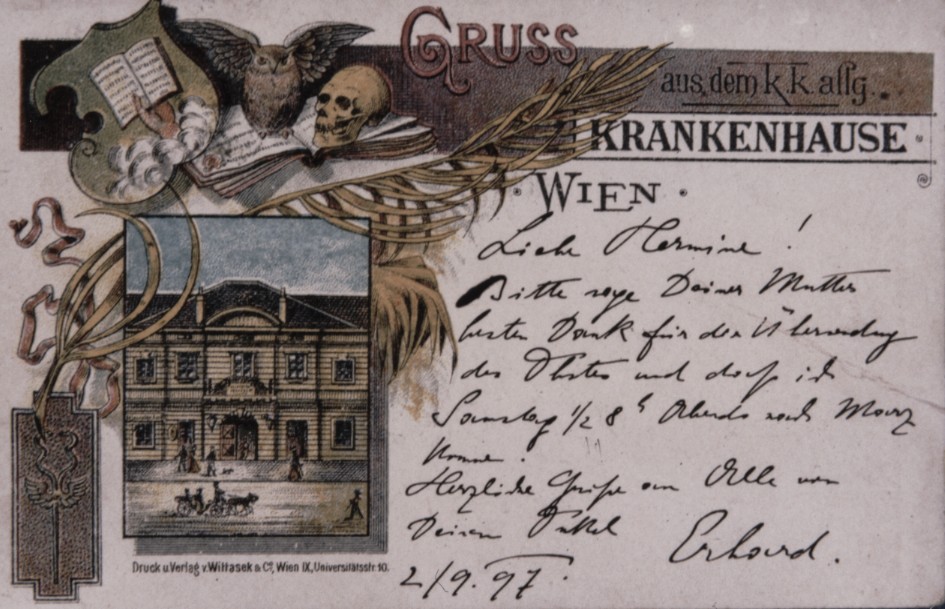 GRUSS
aus dem k. k. allg.
KRANKENHAUSE
WIEN
Liebe Hermine!
Bitte sage Deiner Mutter
besten Dank für die Übersendung
des und dass ich
Samstag 1/2 8h Abends nach Mauer
komme.
Herzliche Grüße an Alle von
Deinem Onkel Erhard.
2/9. 97.
Druck u. Verlag v. Wittasek & Co, Wien IX, Universitätsstr. 10.